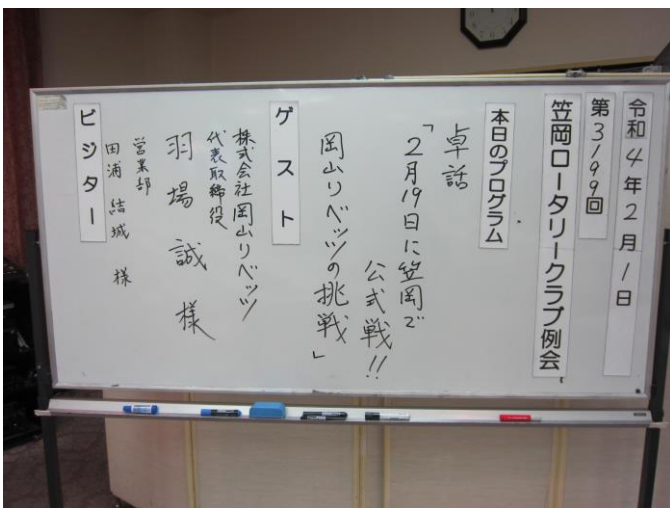 令和4年2月1日
第3199回
笠岡ロータリークラブ例会
本日のプログラム
卓話
「2月19日に笠岡で
公式戦!!
岡山リベッツの挑戦」
ゲスト
株式会社岡山リベッツ
代表取締役
羽場誠様
営業部
田浦結城様
ビジター